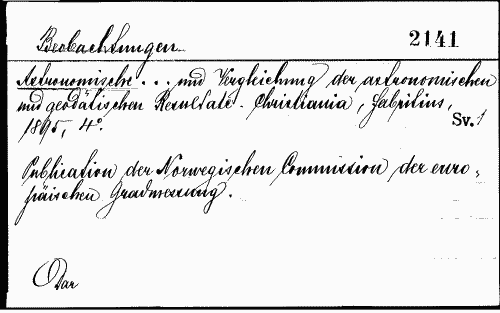 Beobachtungen
2141
Astronomische . . . und Vergleichung der astronomischen
und geodätischen Resultate. Christiania, Fabritius,
1895, 4°.
Sv. 1
Publication der Norwegischen Commission der euro-
päischen Gradmessung.
Dar